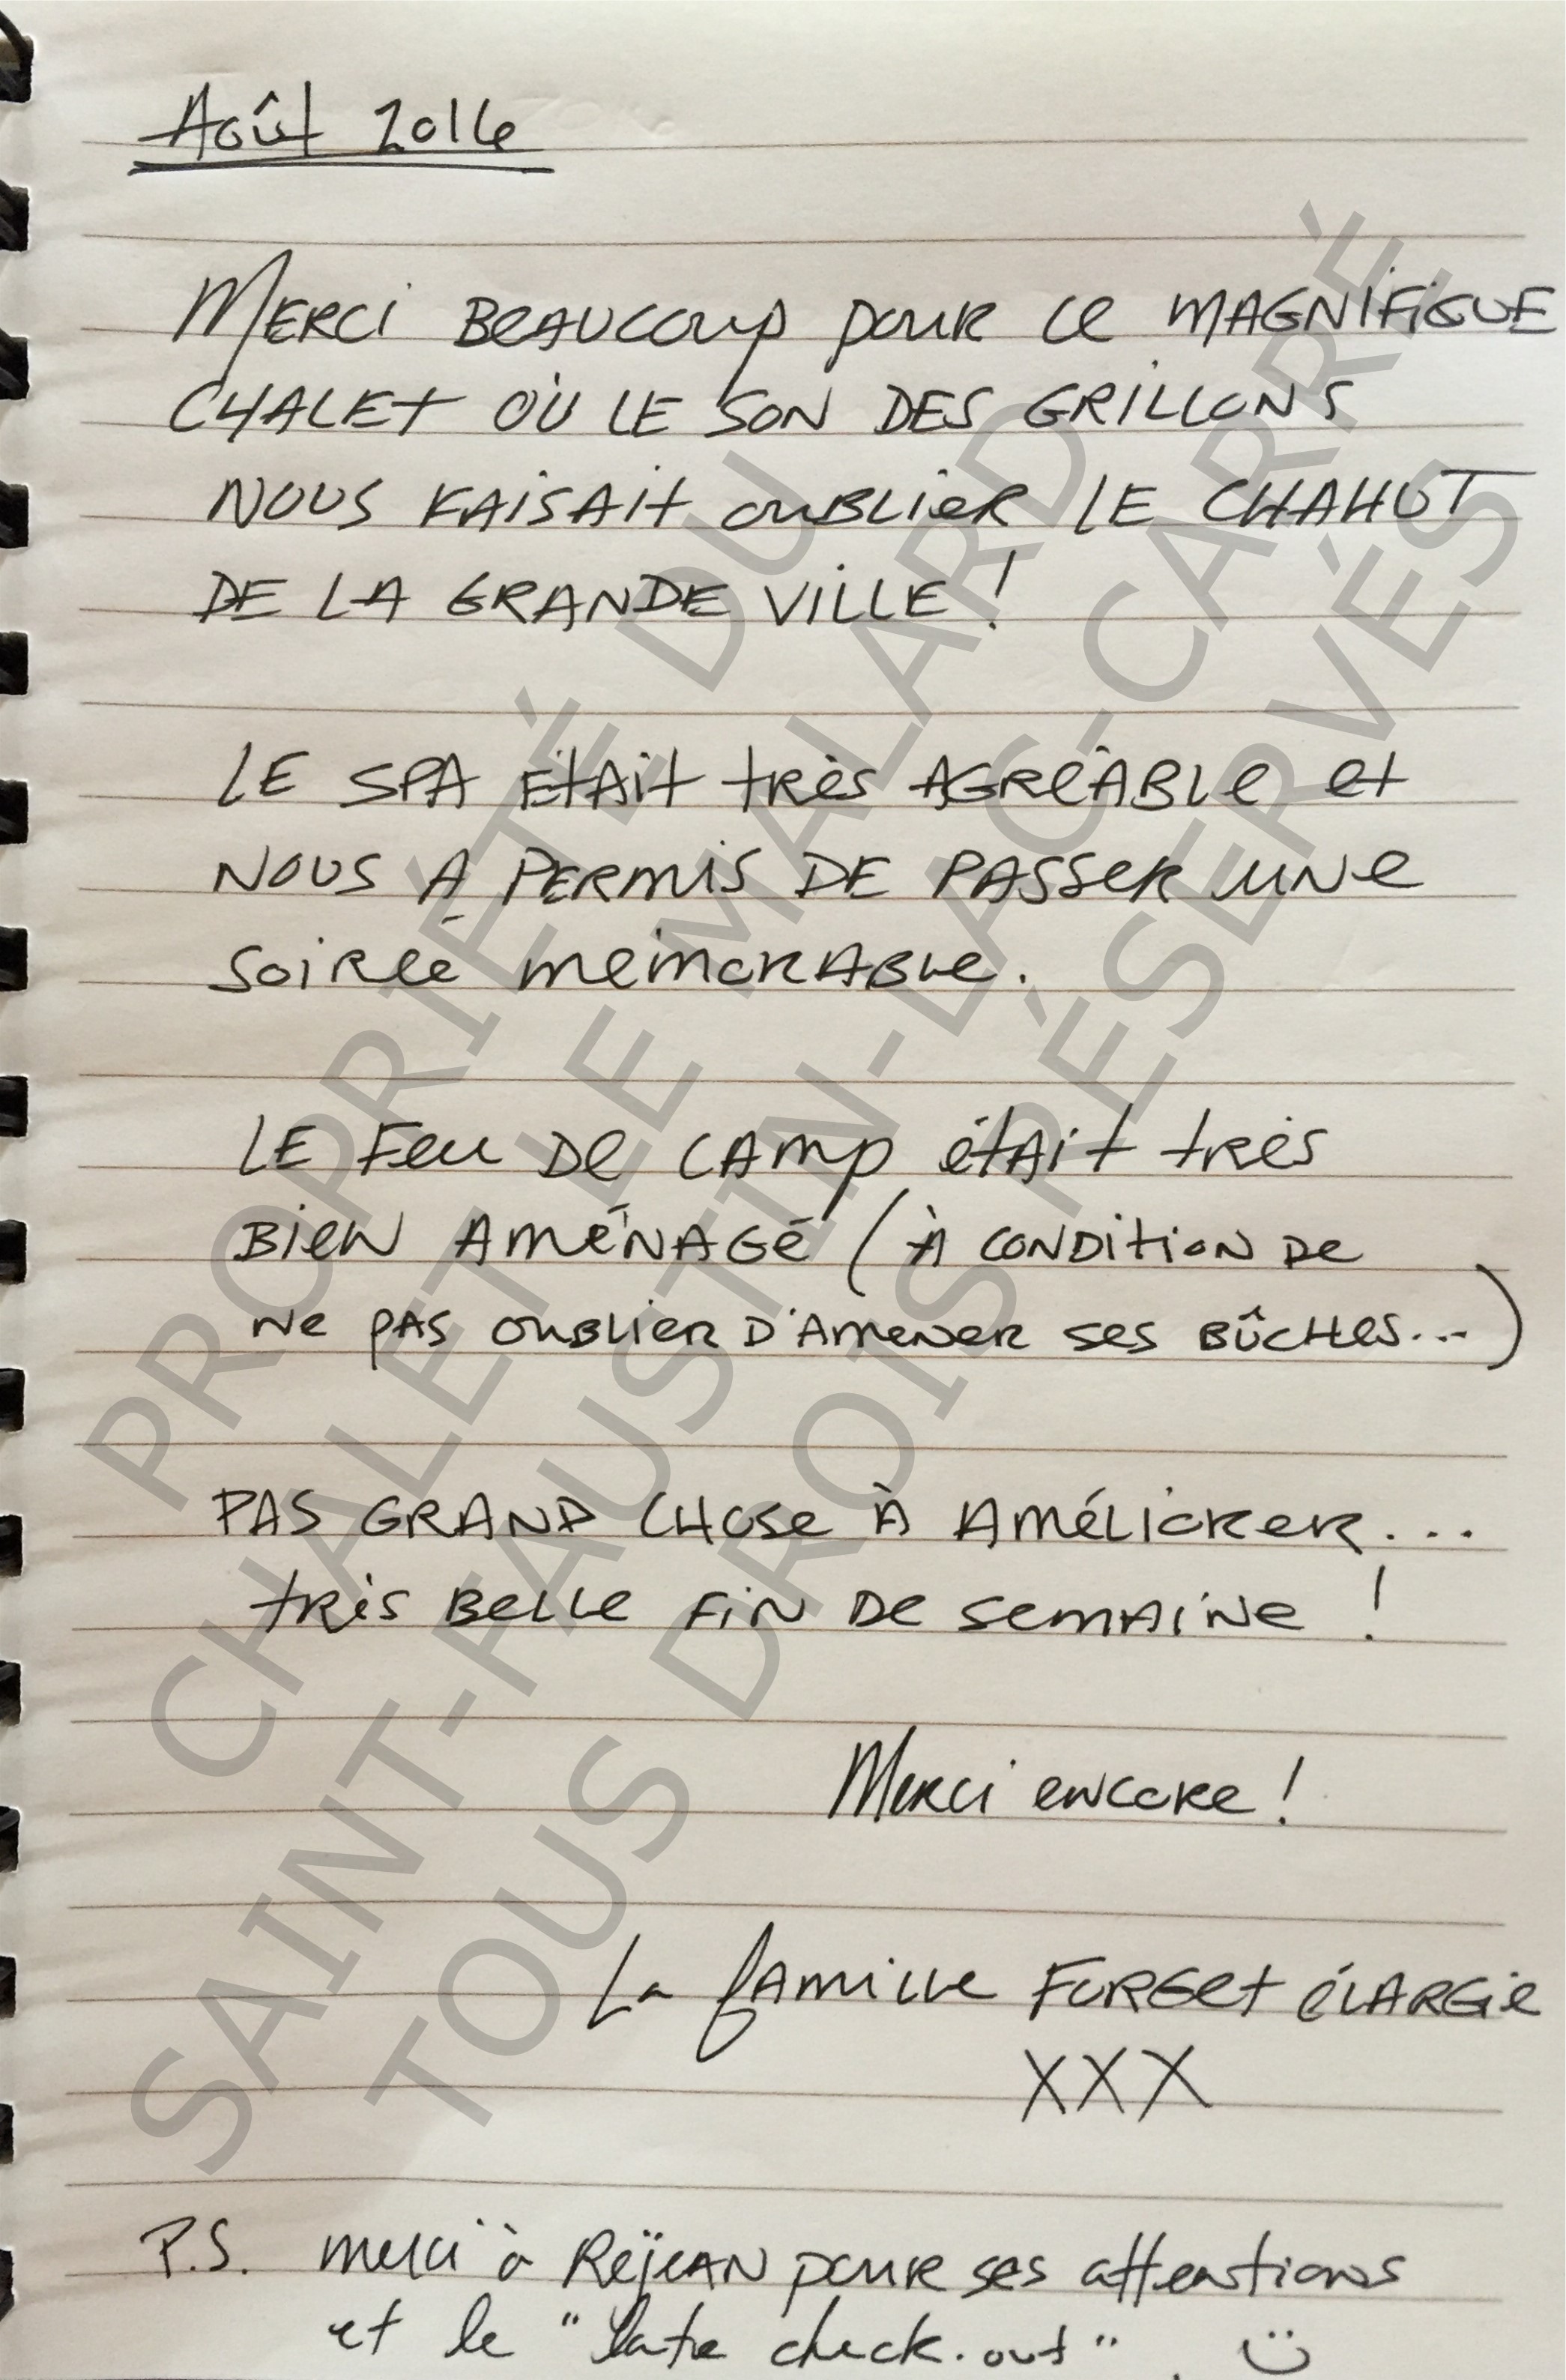 Août 2016
MERCI BEAUCOUP POUR CE MAGNIFIQUE
CHALET OÙ LE SON DES GRILLONS
NOUS FAISAIT OUBLIER LE CHAHUT
DE LA GRANDE VILLE !
LE SPA ÉTAIT très AGRÉABLE et
NOUS A PERMIS DE PASSER UNE
SOIRÉE MÉMORABLE.
LE FEU DE CAMP était très
BIEN AMÉNAGÉ (À CONDITION DE
NE PAS OUBLIER D'AMENER SES BÛCHES...)
PAS GRAND CHOSE À AMÉLIORER...
très BELLE FIN DE SEMAINE !
Merci encore !
La famille FORGET ÉLARGIE
XXX
P.S. merci à RÉJEAN POUR SES attentions
et le "late check-out". :)
PROPRIÉTÉ DU
CHALET LE MALARD
SAINT-FAUSTIN-LAC-CARRÉ
TOUS DROIS RÉSERVÉS